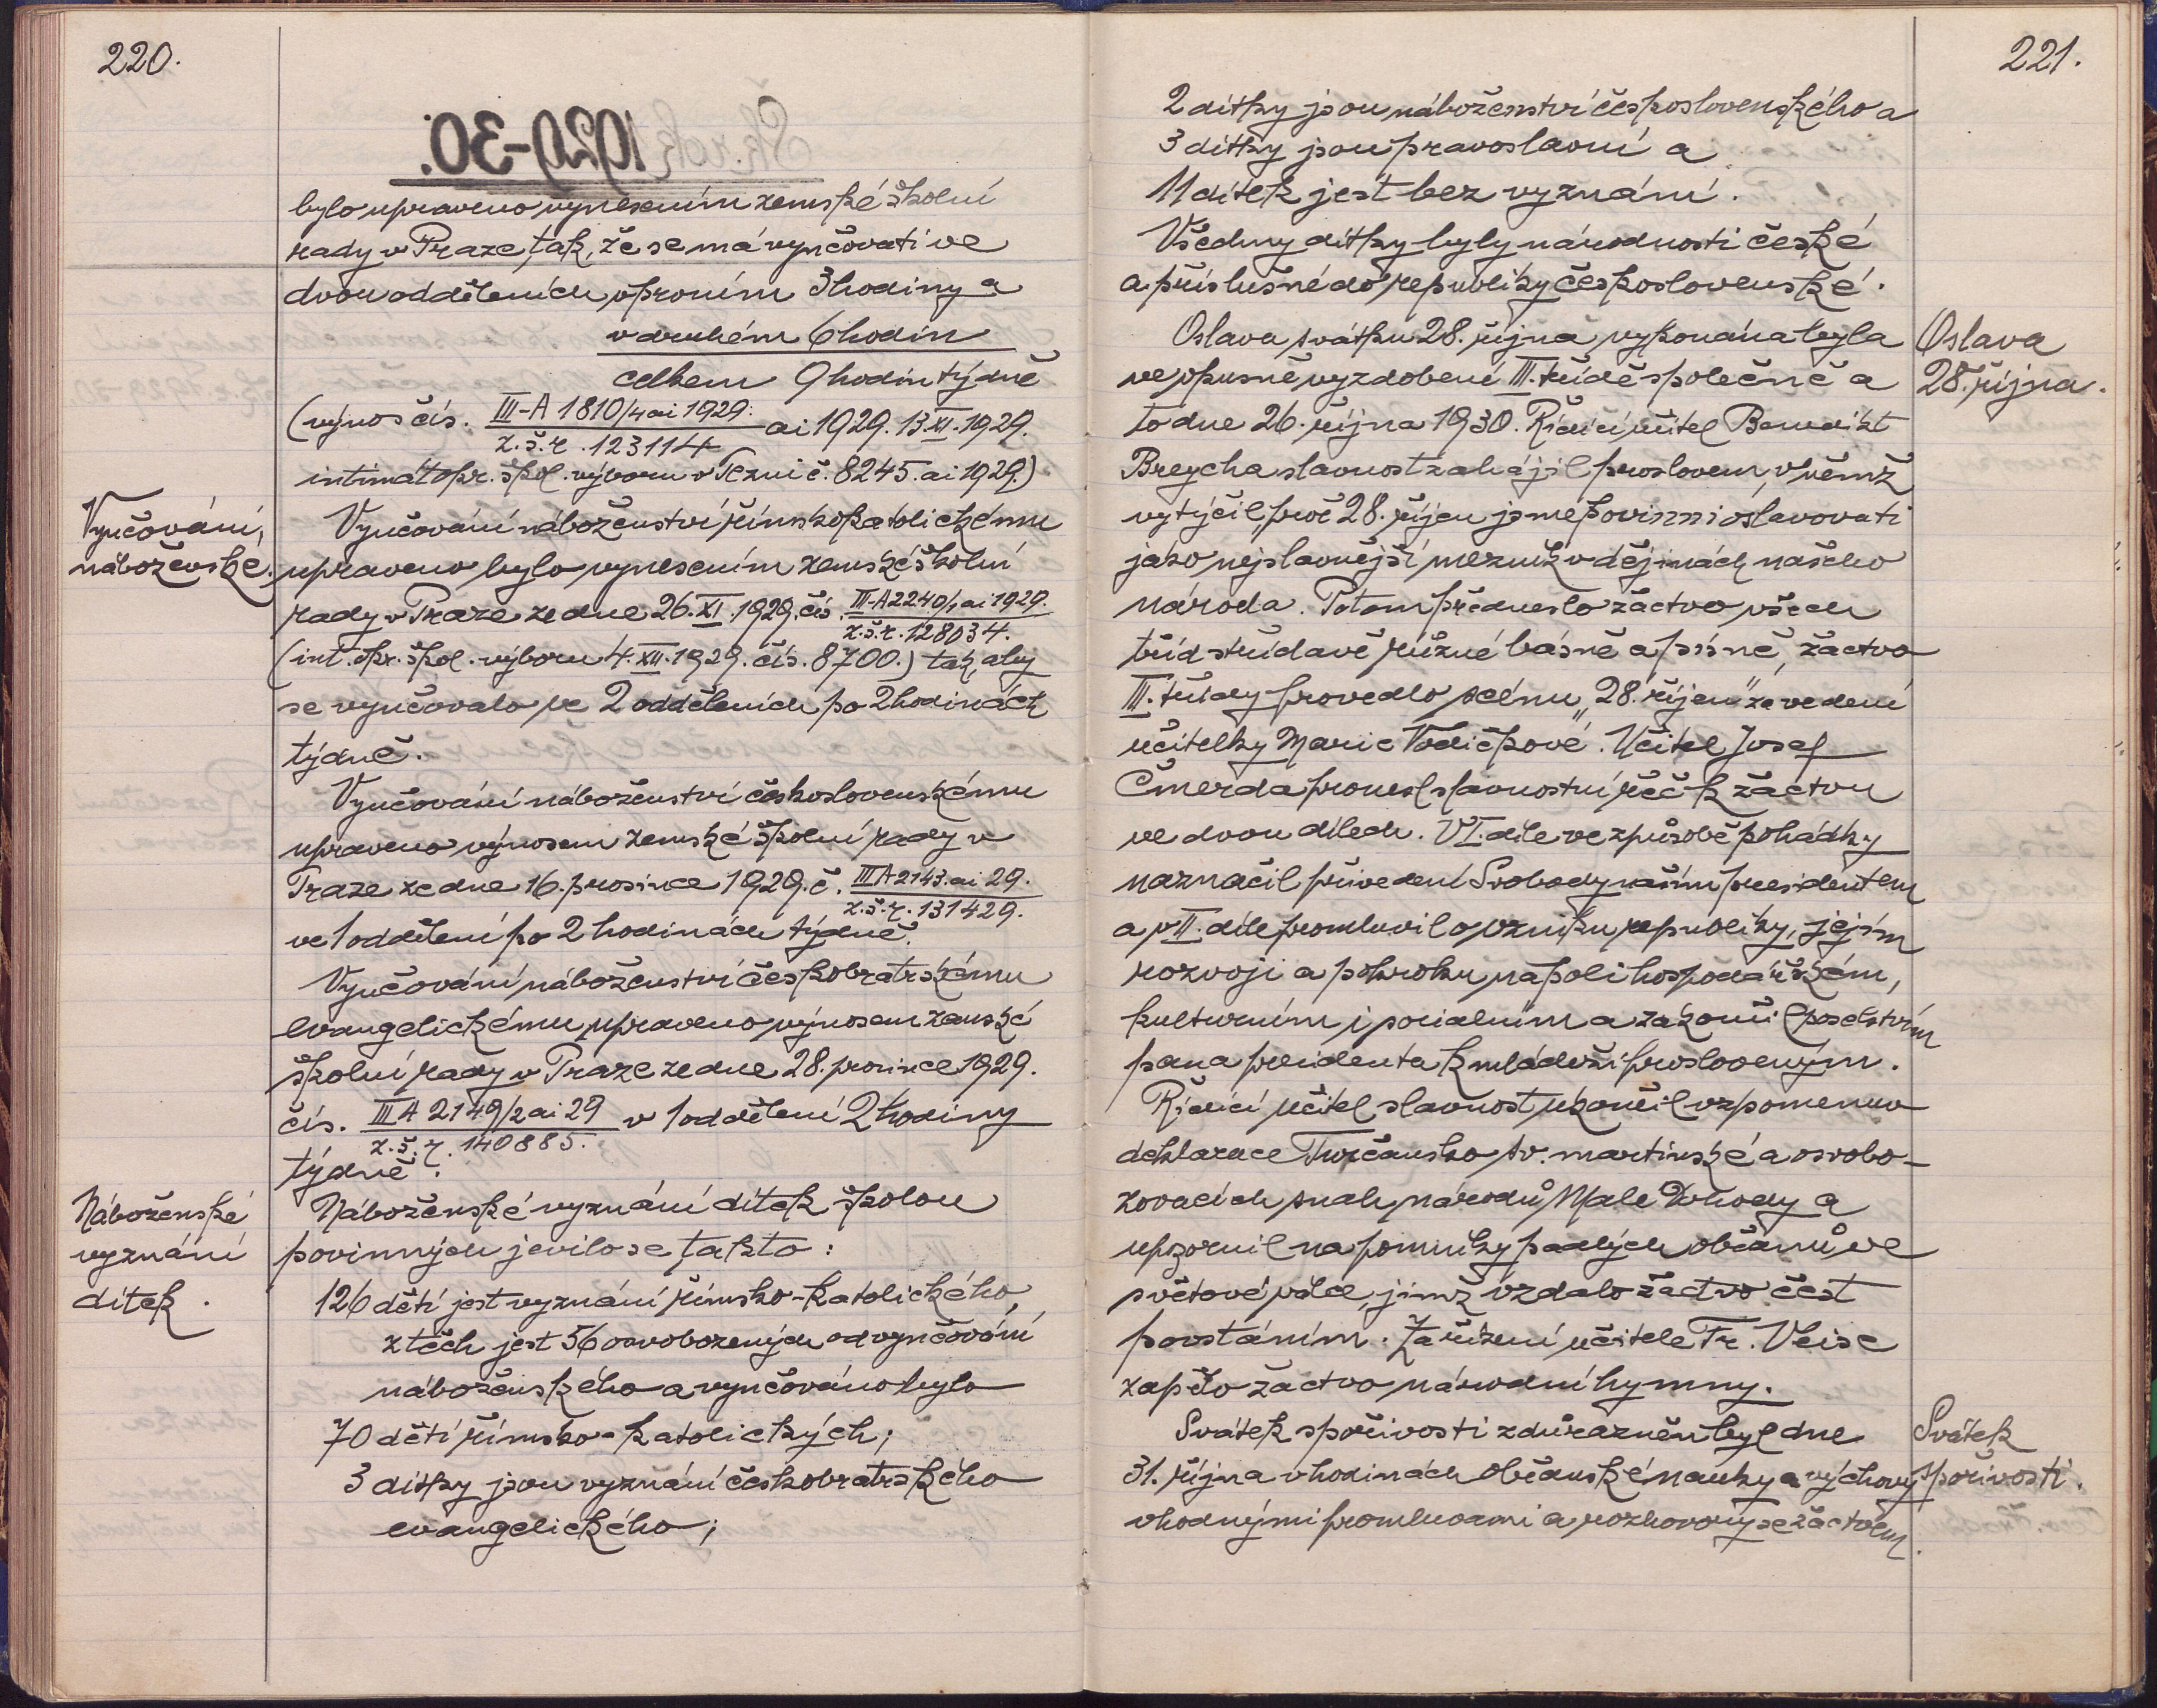 220.
bylo upraveno vynesením zemské školní
rady v Praze, tak, že se má vyučovati ve
dvou odděleních, v prvním 3 hodiny a
v druhém 6 hodin
celkem 9 hodin týdně
(výnos čís. III-A 1810/4 ai 1929. ai 1929. 13.XI.1929.
z.š.r. 123114
intimát okr. škol. výboru v č. 8245. ai 1929.)
Vyučování
náboženské.
Vyučování náboženství římskokatolickému
upraveno bylo vynesením zemské školní
rady v Praze ze dne 26.XI.1929. čís. III-A2240/1 ai 1929.
z.š.r. 128034.
(int. okr. škol. výboru 4.XII.1929. čís. 8700.) tak, aby
se vyučovalo ve 2 odděleních po 2 hodinách
týdně.
Vyučování náboženství československému
upraveno výnosem zemské školní rady v
Praze ze dne 16. prosince 1929. č. IIIA 2143. ai 29.
z.š.r. 131429.
ve 1 oddělení po 2 hodinách týdně.
Vyučování náboženství českobratrskému
evangelickému upraveno výnosem zemské
školní rady v Praze ze dne 28. prosince 1929.
čís. IIIA 2149/2 ai 29 v 1 oddělení 2 hodiny
z.š.r. 140885.
týdně.
Náboženské
vyznání
dítek.
Náboženské vyznání dítek školou
povinných jevilo se takto:
126 dětí jest vyznání římsko-katolického,
z těch jest 56 osvobozených od vyučování
náboženského a vyučováno bylo
70 dětí římsko-katolických;
3 dítky jsou vyznání českobratrského
evangelického;
221.
2 dítky jsou náboženství československého a
3 dítky jsou pravoslavní a
11 dítek jest bez vyznání.
Všechny dítky byly národnosti české
a příslušné do republiky československé.
Oslava
28. října.
Oslava svátku 28. října vykonána byla
ve vkusně vyzdobené III. třídě společně a
to dne 26. října 1930. Řídící učitel Benedikt
Brejcha slavnost zahájil proslovem, v němž
vytýčil proč 28. říjen jsme povinni oslavovati
jako nejslavnější mezník v dějinách našeho
národa. Potom předneslo žactvo všech
tříd střídavě různé básně a písně, žactvo
III. třídy provedlo scénu „28. říjen" za vedení
učitelky Marie Vodičkové. Učitel Josef
Čmerda pronesl slavnostní řeč k žactvu
ve dvou dílech. V I. díle ve způsobě pohádky
naznačil přivedení Svobody naším presidentem
a v II. díle promluvil o vzniku republiky, jejím
rozvoji a pokroku na poli hospodářském,
kulturním i socialním a zakončil poselstvím
pana presidenta k mládeži prosloveným.
Řídící učitel slavnost ukončil vzpomenuv
deklarace Turčansko sv. martinské a osvobo-
zovacích snah národů Malé Dohody a
upozornil na pomníky padlých občanů ve
světové válce, jimž vzdalo žactvo čest
povstáním. Za řízení učitele Fr. Veise
zapělo žactvo národní hymny.
Svátek
spořivosti.
Svátek spořivosti zdůrazněn byl dne
31. října v hodinách občanské nauky a výchovy
vhodnými promluvami a rozhovory se žactvem.